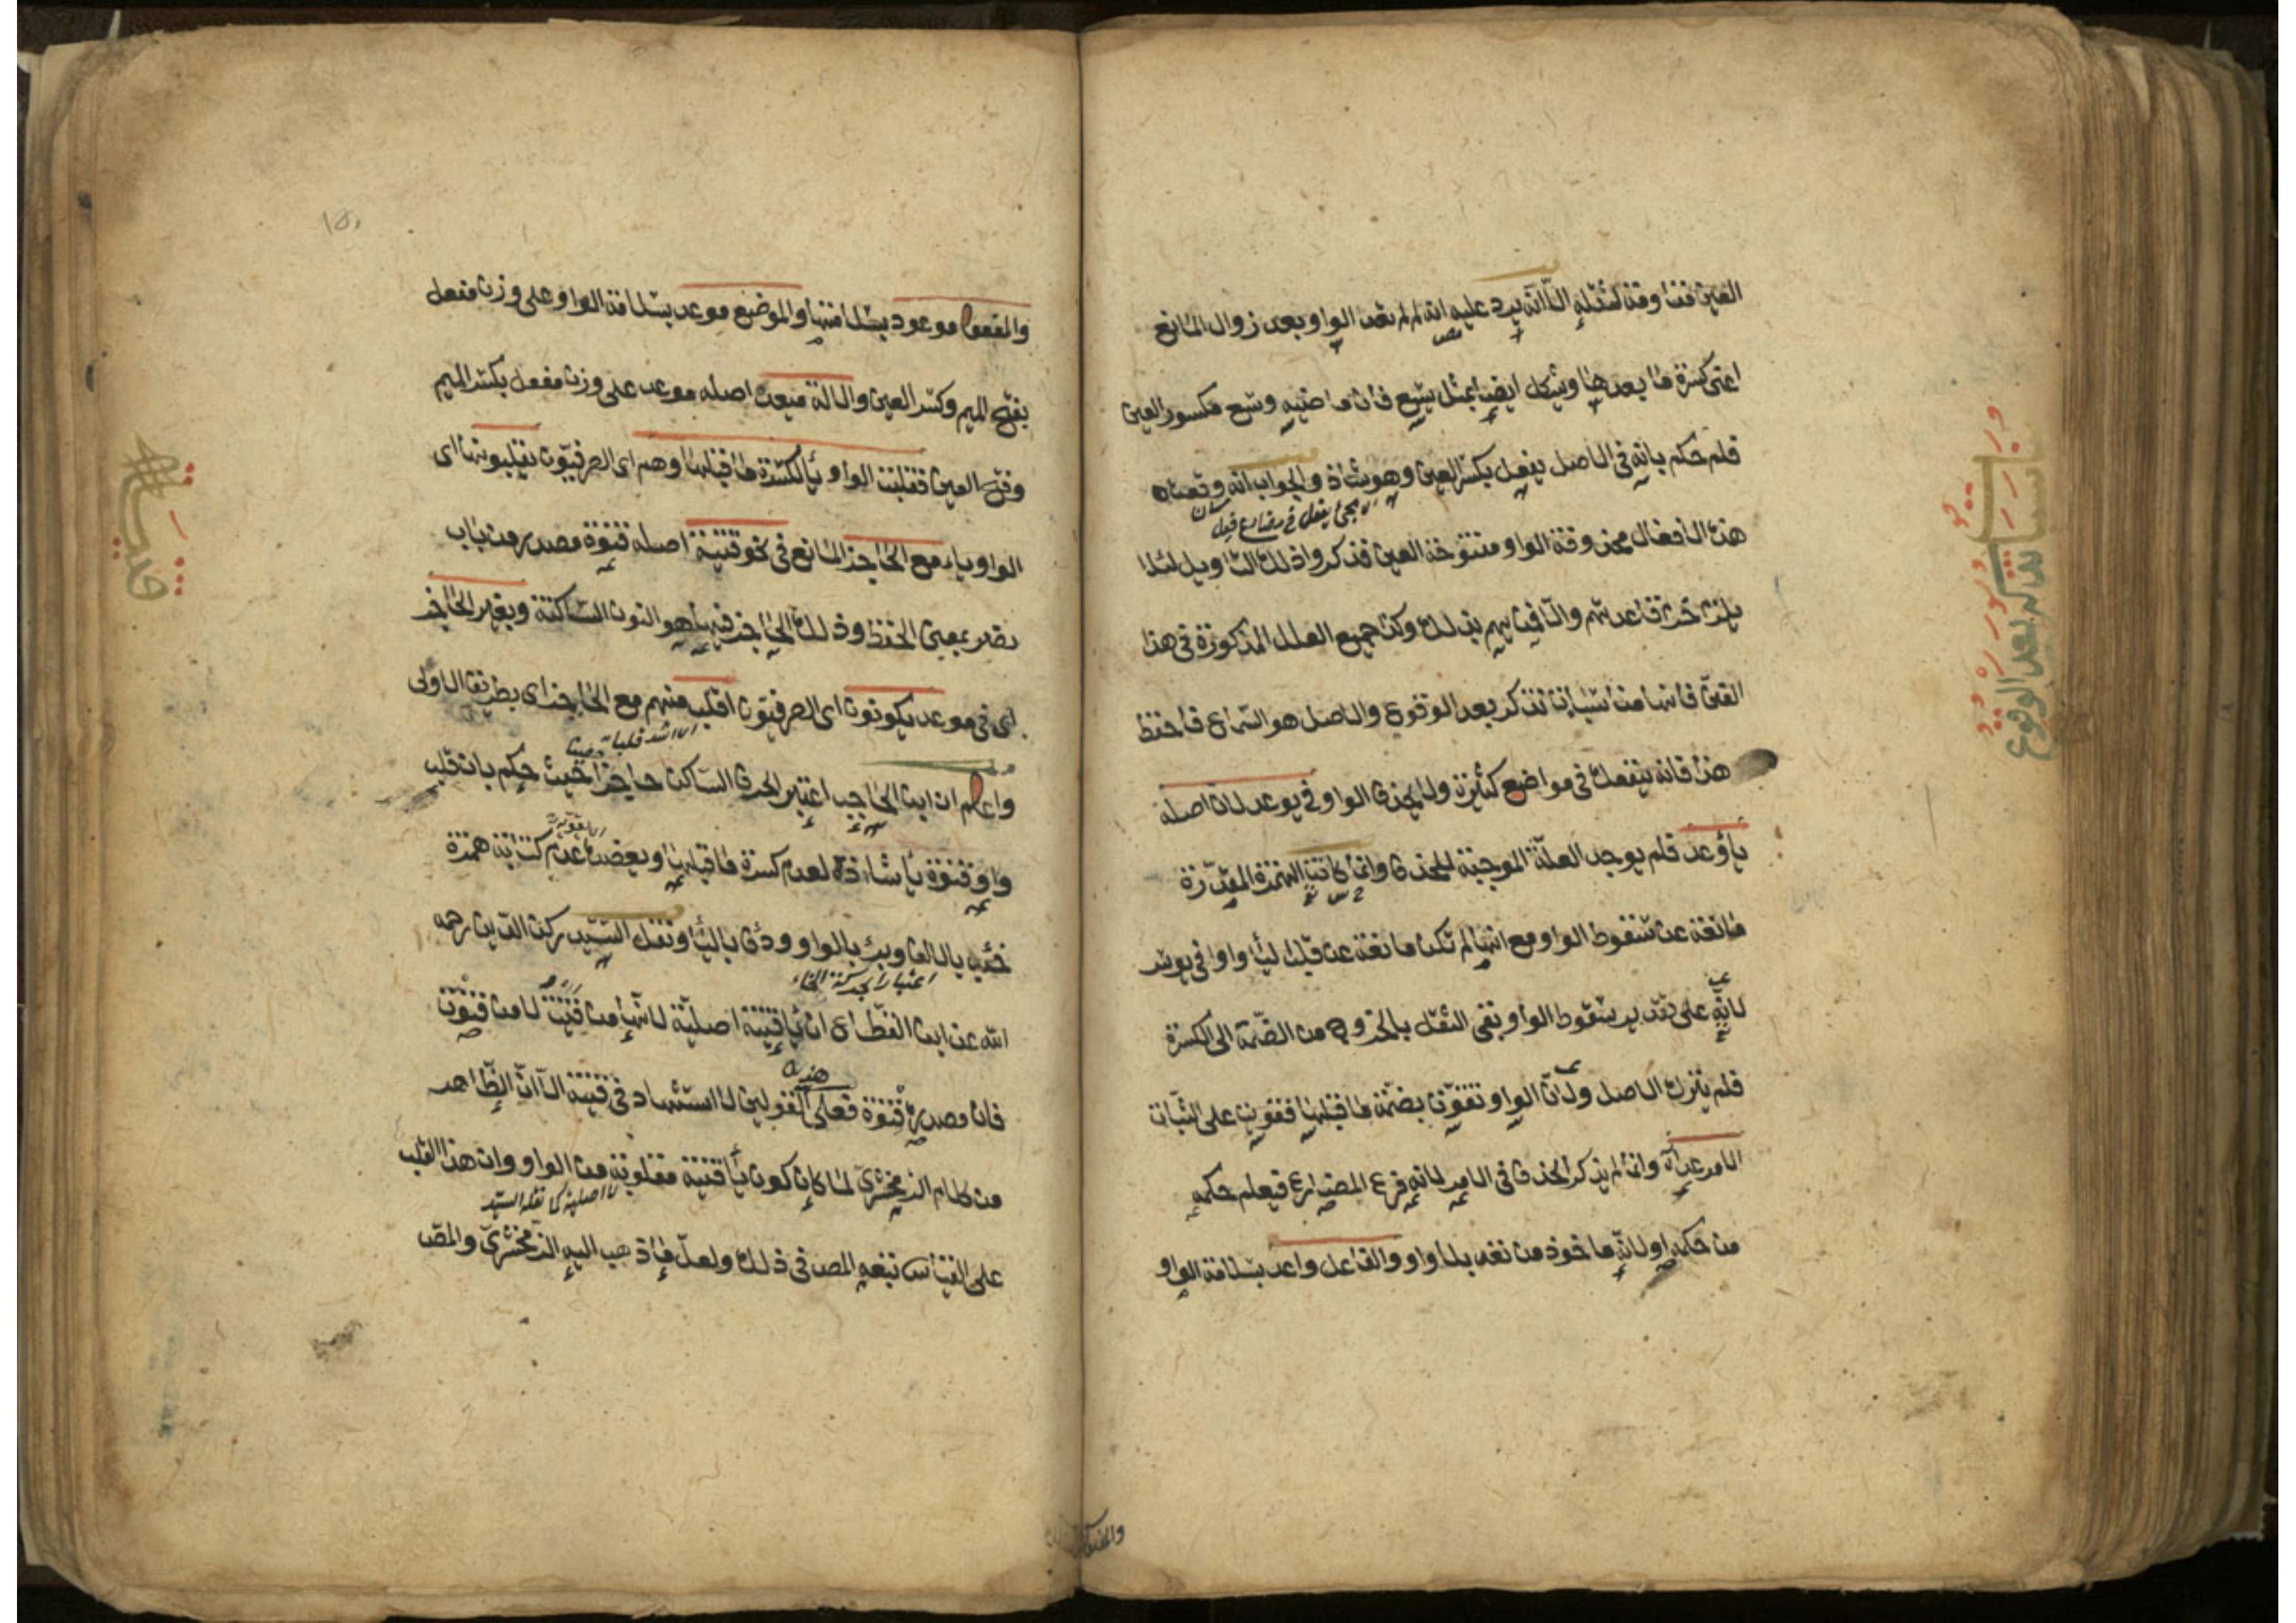 العين فتناوقة لثقله الا انه يرد عليه انه لم لم تعد الواو بعد زوال المانع
اعنى كسرة ما بعدها ويشكل ايضا بمثل يسع فان ماضيه وسع مكسور العين
فلم حكم بانه فى الاصل يفعل بكسر العين وهو شاذ والجواب انه وقعت
لا يجئ يفعل فى مضارع فعل
هذه الافعال محذوفة الواو مفتوحة العين فذكروا ذلك التاويل لئلا
يلزم خرق قاعدتهم والا فمن اين لهم بذلك وكذا جميع العلل المذكورة فى هذا
الفن فانها مناسبات تذكر بعد الوقوع والاصل هو السماع فاحفظ
هذا فانه ينفعك فى مواضع كثيرة ولا يحذف الواو فى يوعد لان اصله
يأوعد فلم يوجد العلة الموجبة للحذف وانما كانت الهمزة المقدرة
مانعة عن سقوط الواو مع انها لم تكن مانعة عن قلب الياء واوا فى يوسر
لانه على تقدير سقوط الواو بقى الثقل بالخروج من الضمة الى الكسرة
فلم يترك الاصل ولان الواو تقوت بضمة ما قبلها فقويت على الثبات
الامر عد اه وانما لم يذكر الحذف فى الامر لانه فرع المضارع فيعلم حكمه
من حكمه او لانه ماخوذ من تعد بلا واو والفاعل واعد بسلامة الواو
مناسبات تذكر بعد الوقوع
والمفعول
والمفعول موعود بسلامتها والموضع موعد بسلامة الواو على وزن مفعل
بفتح الميم وكسر العين والالة ميعد اصله موعد على وزن مفعل بكسر الميم
وفتح العين فقلبت الواو ياء لكسرة ما قبلها وهم اى الصرفيون يقلبونها اى
الواو ياء مع الحاجز المانع فى نحو قنية اصله قنوة مصدر من باب
نصر بمعنى الحفظ وذلك الحاجز فيها هو النون الساكنة وبغير الحاجز
اى فى موعد يكونون اى الصرفيون اقلب منهم مع الحاجز اى بطريق الاولى
اى اشد قلبا
واعلم ان ابن الحاجب اعتبر الحرف الساكن حاجزا حيث حكم بان قلب
واو قنوة ياء شاذة لعدم كسرة ما قبلها ويعضده عدم كتابة همزة
خبء بالالف وبرء بالواو ودفء بالياء ونقل السيد ركن الدين رحمه
الله عن ابن القطاع ان ياء قنية اصلية لانها من قنيت لا من قنوت
فان مصدره قنوة فعلى هذين القولين لا استشهاد فى قنية الا ان الظاهر
من كلام الزمخشرى لما كان كون ياء قنية مقلوبة من الواو وان هذا القلب
لا اصلية كما نقله السيد
على القياس تبعه المص فى ذلك ولعل ما ذهب اليه الزمخشرى والمص
قنية